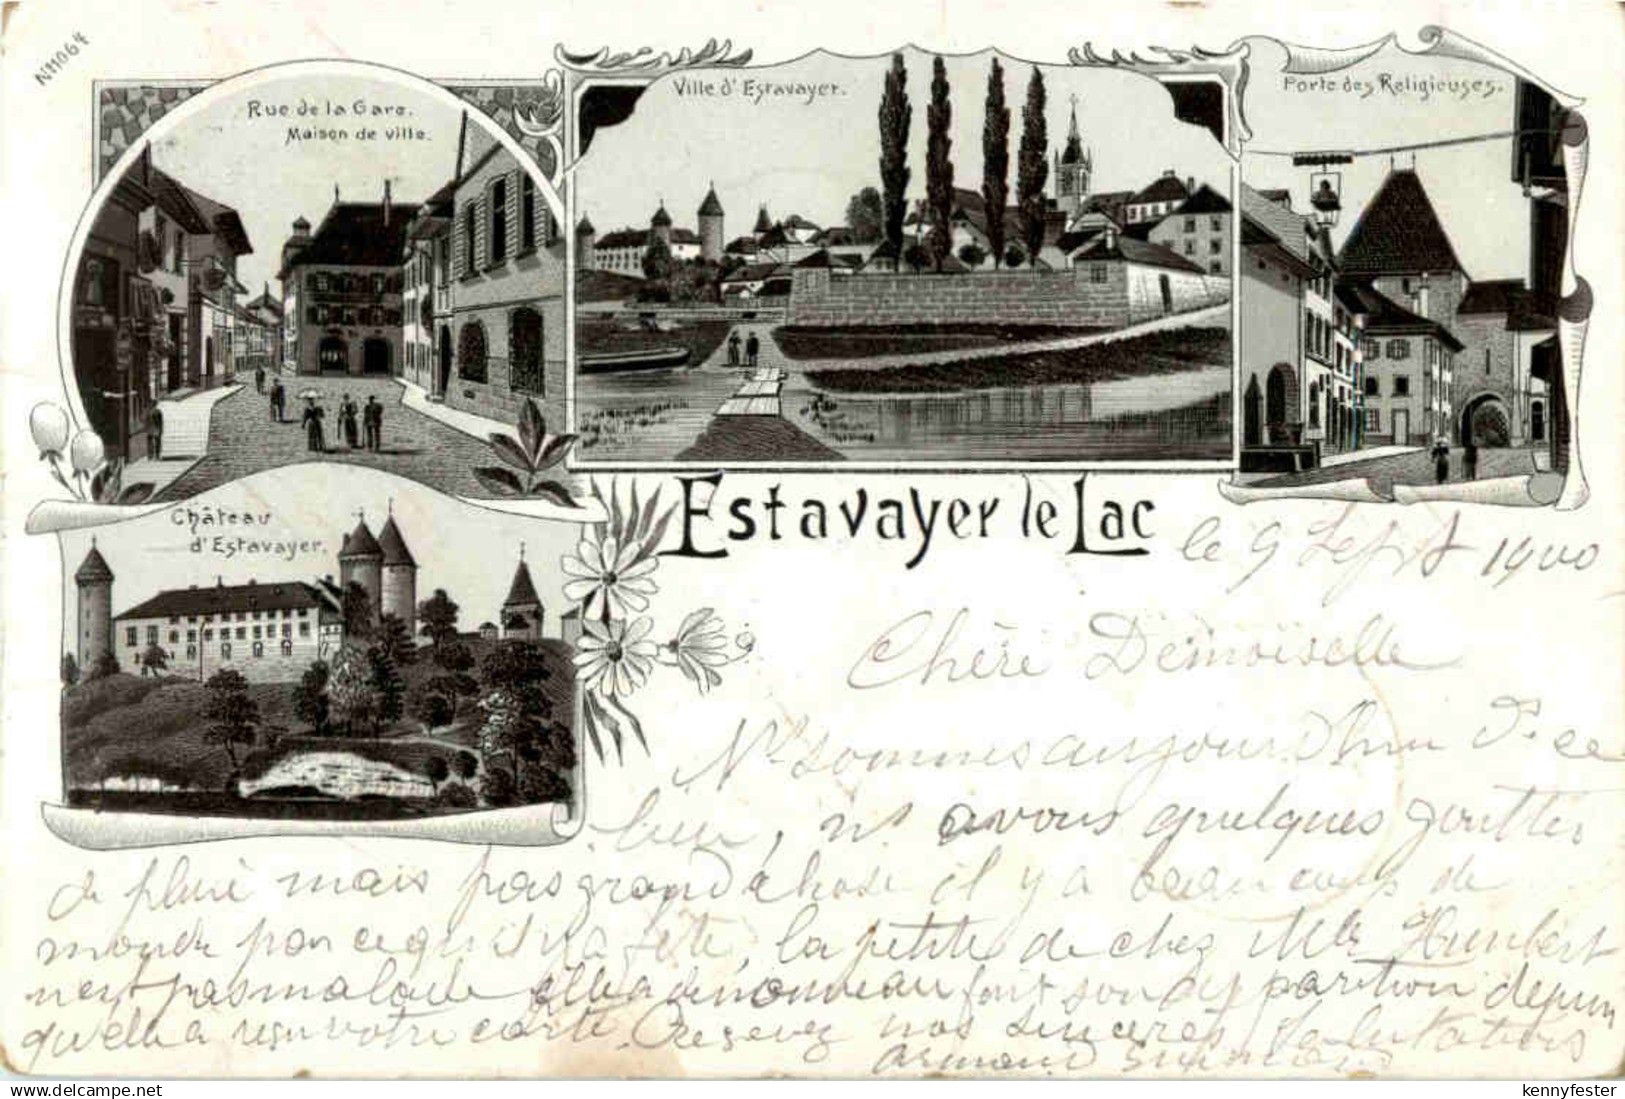 Nº11064
Rue de la Gare.
Maison de ville.
Ville d'Estavayer.
Porte des Religieuses.
Château
d'Estavayer.
Estavayer le Lac
le 9 Sept 1900
Chère Demoiselle
Ns sommes aujourd'hui ce
lieu, ns avons quelques gouttes
de pluie mais pas grand chose il y a beaucoup de
monde parce qu'il y a fête, la petite de chez Mlle Humbert
n'est pas malade elle a de nouveau fait son apparition depuis
qu'elle a reçu votre carte. Recevez nos sincères salutations
Armand
delcampe.net
kennyfester